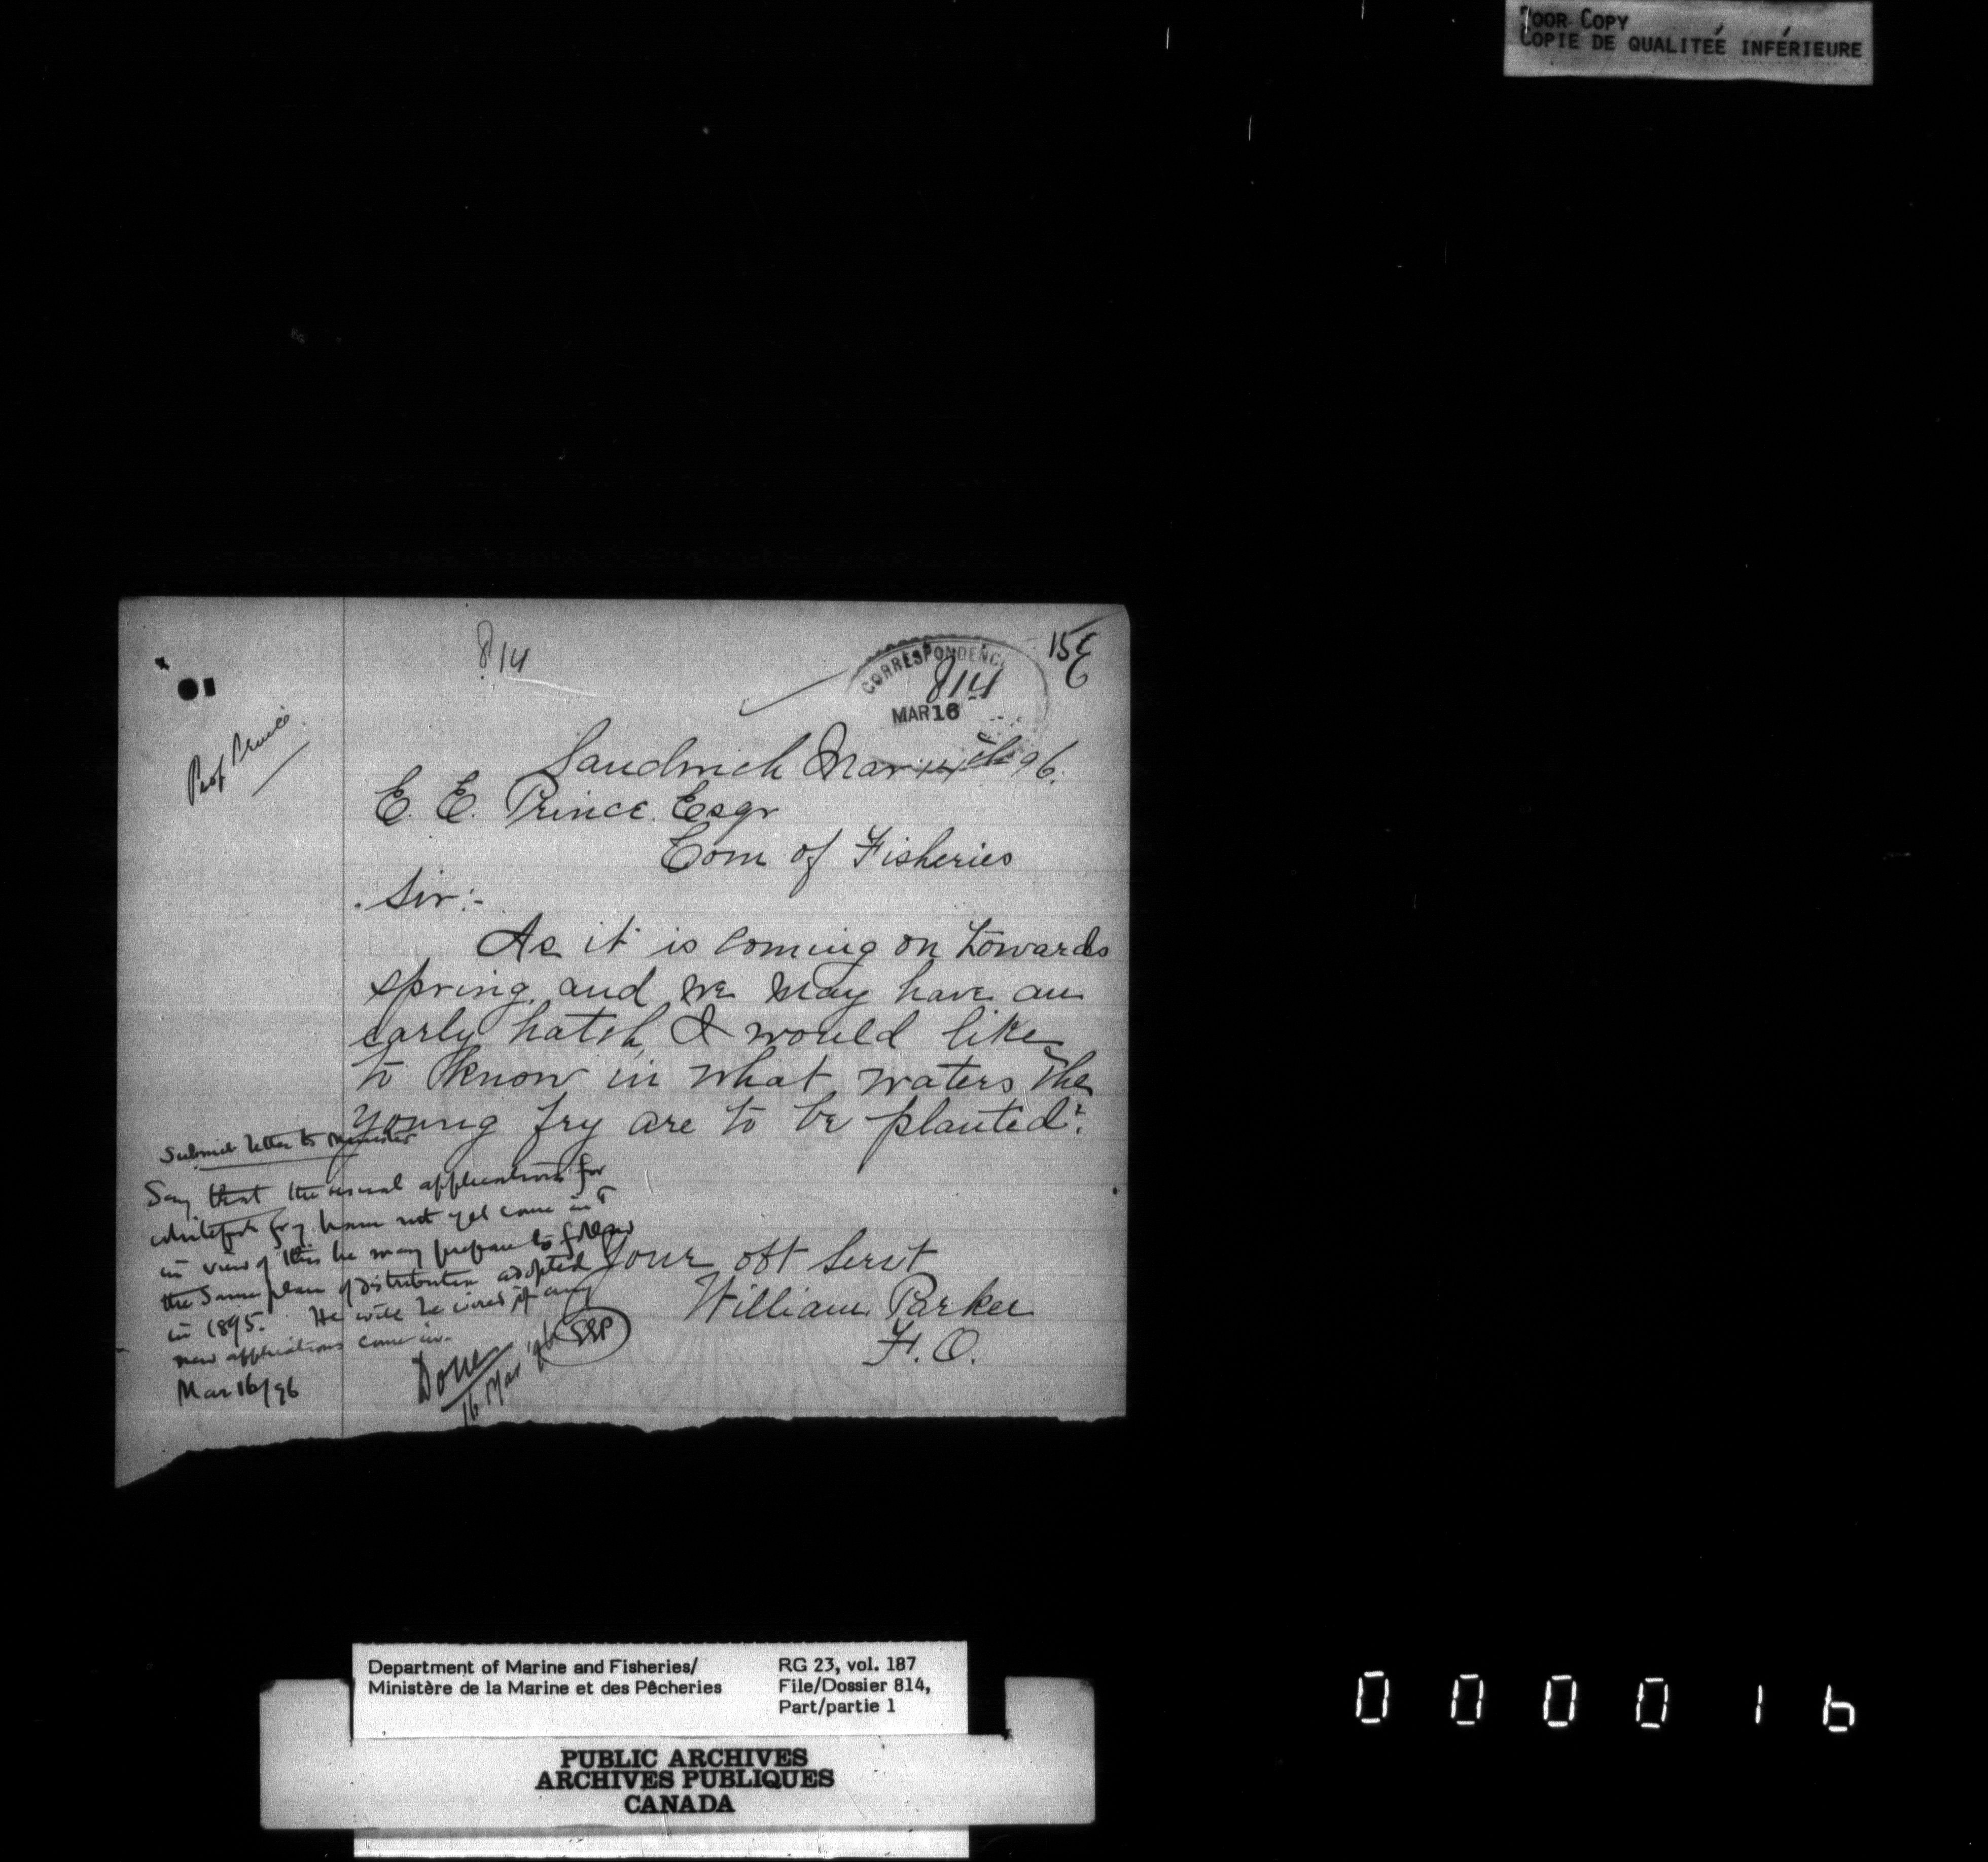 Poor Copy
Copie de qualiteé inférieure
814
15
CORRESPONDENCE
814
MAR 16
Prof Prince
Sandwich Mar 14th 96.
E. E. Prince. Esqr
Com of Fisheries
Sir:-
As it is coming on towards
spring, and we may have an
early hatch, I would like
to know in what waters the
young fry are to be planted?
Your obt Servt
William Parker
F. O.
Submit letter to Minister
Say that the usual applications for
whitefish fry have not yet come in &
in view of this he may prepare to follow
the same plan of distribution adopted
in 1895. He will be wired if any
new applications come in.
Mar 16/96
Done
16 Mar '96
Department of Marine and Fisheries/
Ministère de la Marine et des Pêcheries
RG 23, vol. 187
File/Dossier 814,
Part/partie 1
PUBLIC ARCHIVES
ARCHIVES PUBLIQUES
CANADA
000016